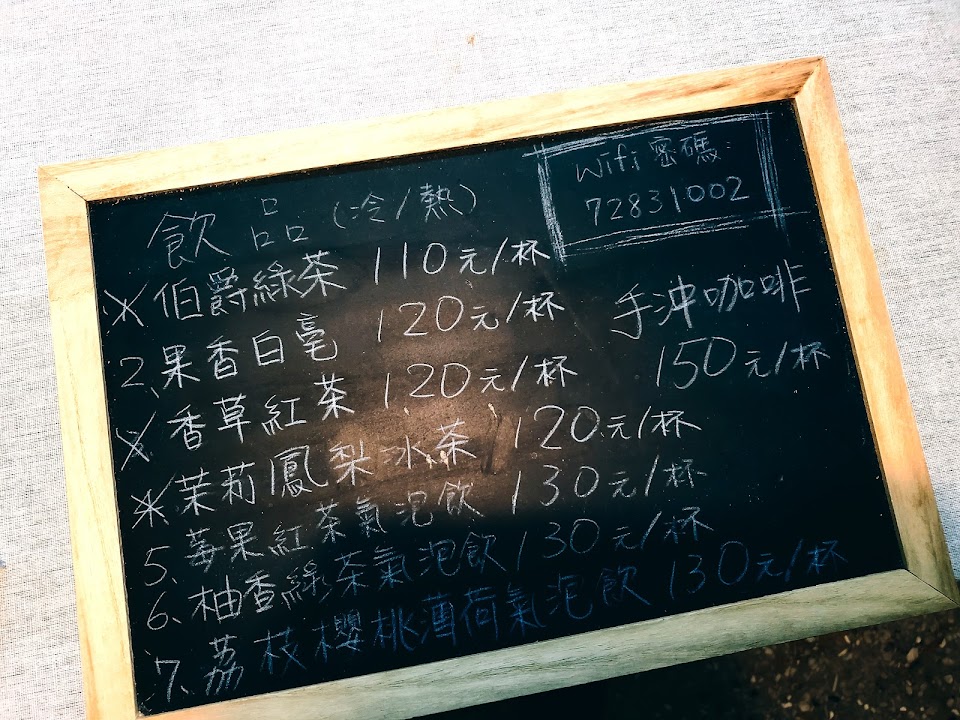 飲品(冷/熱)
Wifi密碼:
72831002
伯爵綠茶 110元/杯
2、果香白毫 120元/杯
香草紅茶 120元/杯
茉莉鳳梨冰茶 120元/杯
5、莓果紅茶氣泡飲 130元/杯
6、柚香綠茶氣泡飲 130元/杯
7、荔枝櫻桃薄荷氣泡飲 130元/杯
手沖咖啡
150元/杯